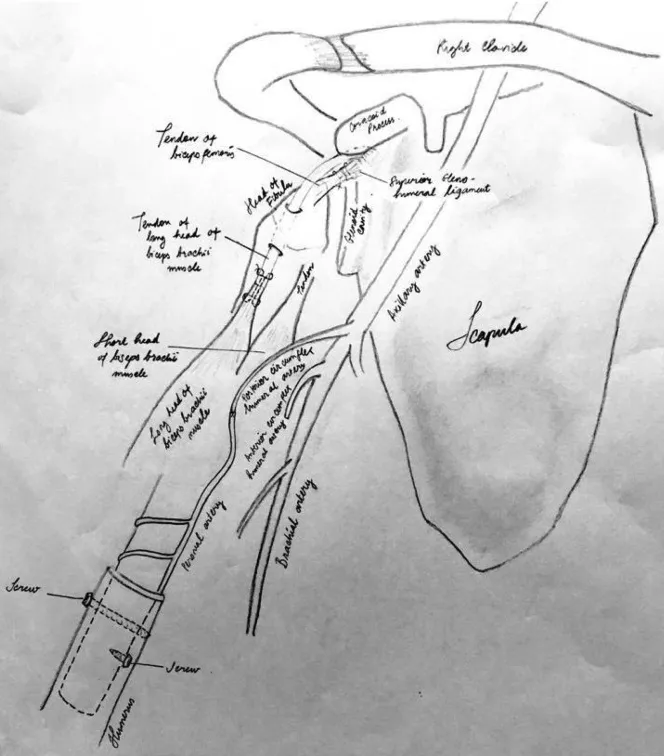 Right Clavicle
Coracoid
Process
Tendon of
biceps femoris
Head of
Fibula
Superior Gleno-
humeral ligament
Glenoid
cavity
Tendon of
long head of
biceps brachii
muscle
Tendon
Axillary artery
Scapula
Short head
of biceps brachii
muscle
Posterior circumflex
humeral artery
Long head of
biceps brachii
muscle
Anterior circumflex
humeral artery
Peroneal artery
Brachial artery
Screw
Screw
Humerus